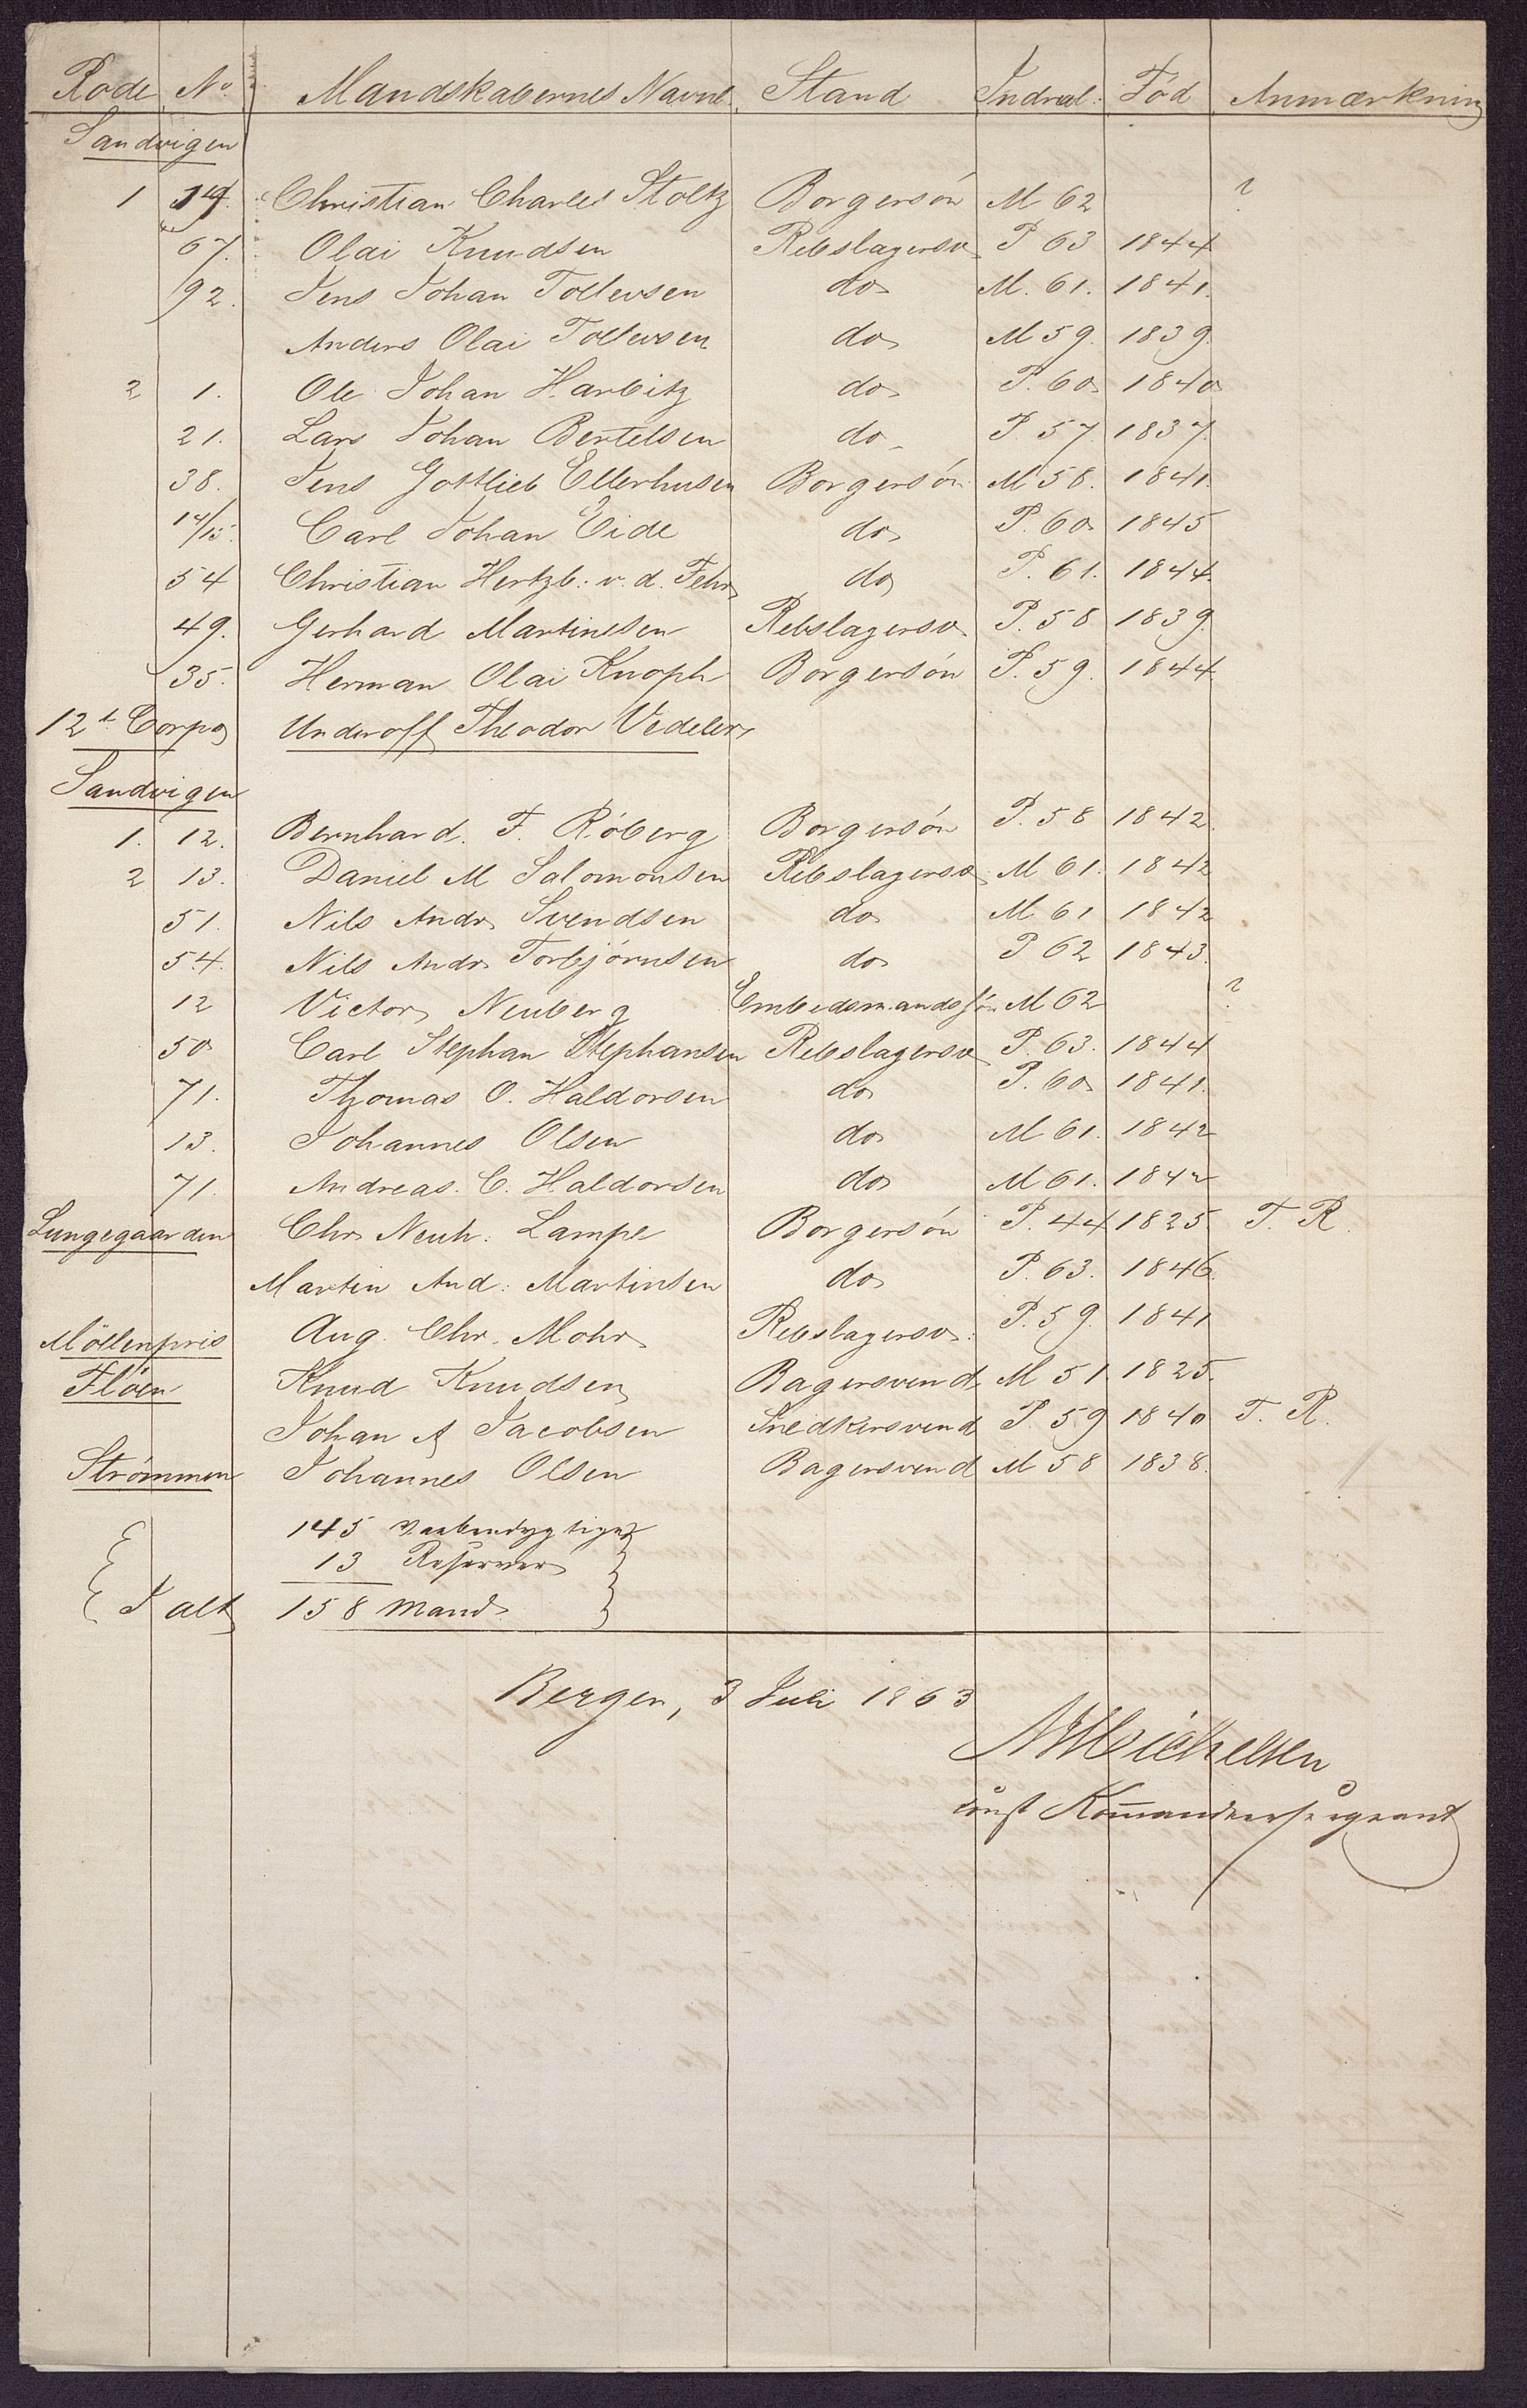 Rode No. Mandskabernes Navne Stand Indrul: Född Anmærkning
Sandvigen
1 14. Christian Charles Stoltz Borgersön M 62 ?
67. Olai Knudsen Rebslagersv P 63 1844
92. Jens Johan Tollevsen do M. 61. 1841.
Anders Olai Tollevsen do M 59. 1839.
2 1. Ole Johan Harbitz do P. 60 1840
21. Lars Johan Bertelsen do P. 57 1837.
38. Jens Gottlieb Ellerhusen Borgersön M 58. 1841.
14/15. Carl Johan Eide do P. 60 1845
54 Christian Hertzb: v. d. Fehr do P. 61. 1844.
49. Gerhard Martinesen Rebslagersv P. 58 1839.
35. Herman Olai Knoph Borgersön P. 59. 1844
12t Corps Underoff Theodor Vedeler
Sandvigen
1. 12. Bernhard. F. Röberg Borgersön P. 58 1842.
2 13. Daniel M Salomonsen Rebslagersv M 61. 1842
51. Nils Andr Svendsen do M 61 1842
54. Nils Andr Torbjörnsen do P 62 1843.
12 Victor Neuberg Embedsmandssön M 62 ?
50 Carl Stephan Stephansen Rebslagersv P. 63. 1844
71. Thomas O. Haldorsen do P. 60 1841.
13. Johannes Olsen do M 61. 1842
71. Andreas. C. Haldorsen do M 61. 1842
Lungegaarden Chr Neuh: Lampe Borgersön P. 44 1825 T. R.
Martin And: Martinsen do P. 63. 1846.
Möllenpris Aug. Chr. Mohr Rebslagersv: P. 59. 1841
Flöen Knud Knudsen Bagersvend M 51 1825.
Johan A Jacobsen Snedkersvend P 59 1840 T. R.
Strömmen Johannes Olsen Bagersvend M 58 1838.
145 Vaabendygtige
13 Reserver
I alt 158 Mand
Bergen, 3 Juli 1863
Michelsen
const Kommandeersergeant